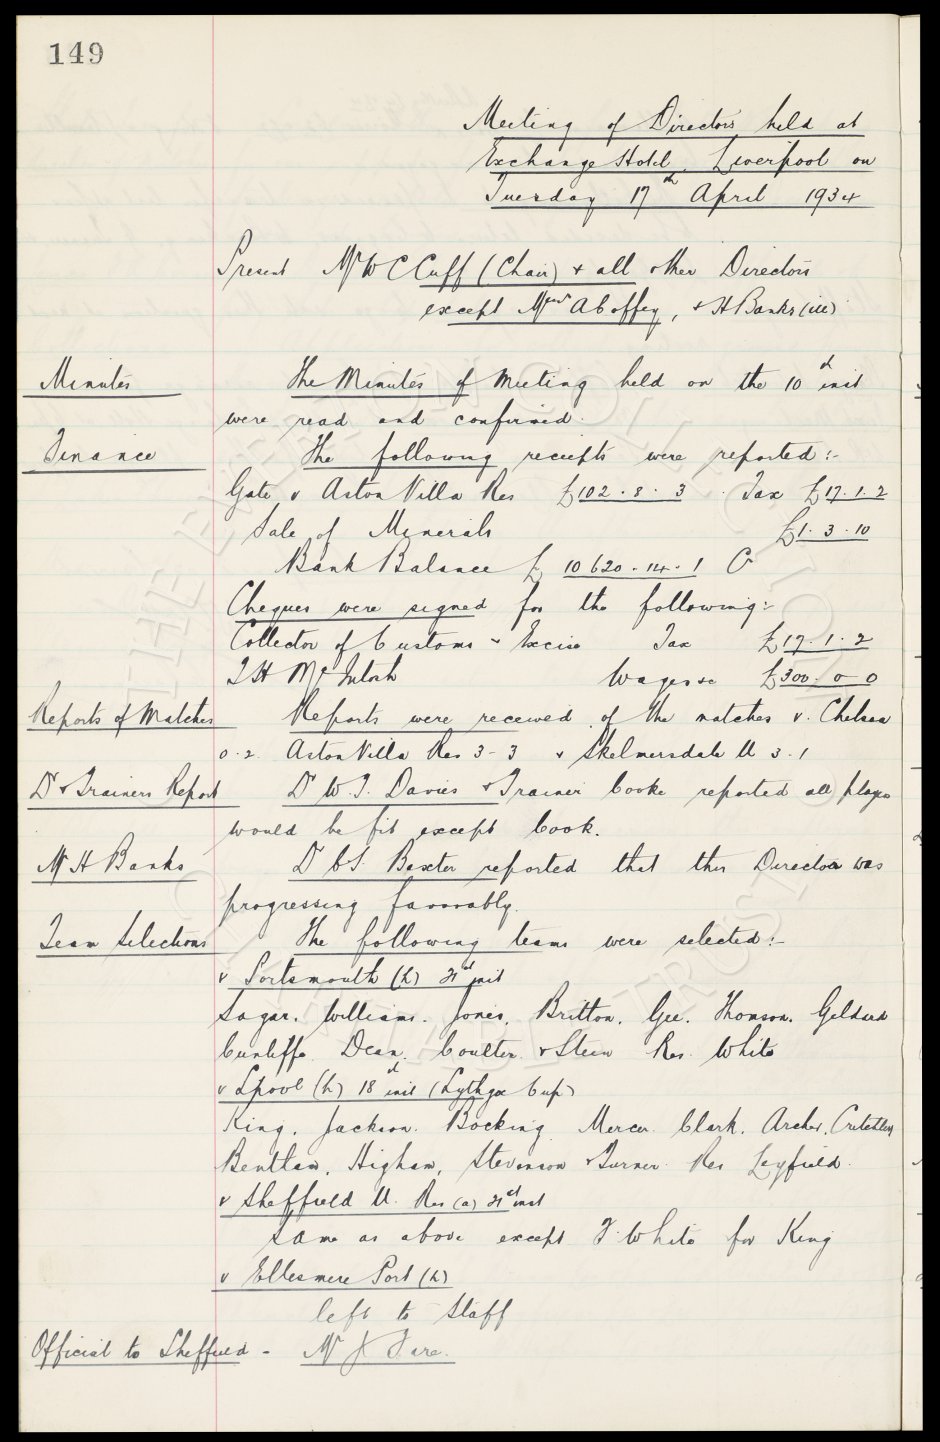 149
Meeting of Directors held at
Exchange Hotel, Liverpool on
Tuesday 17th April 1934
Present Mr W C Cuff (Chair) + all other Directors
except Messrs A Coffey, + H Banks (ill)
Minutes The Minutes of Meeting held on the 10th inst
were read and confirmed.
Finance The following receipts were reported:-
Gate v Aston Villa Res £102.8.3 Tax £17.1.2
Sale of Minerals £1.3.10
Bank Balance £10620.14.1 Cr
Cheques were signed for the following:-
Collector of Customs + Excise Tax £17.1.2
T H McIntosh Wages &c £300.0.0
Reports of Matches Reports were received of the matches v. Chelsea
0.2. Aston Villa Res 3-3 + Skelmersdale U 3.1
Dr + Trainers Report Dr W.T. Davies + Trainer Cooke reported all players
would be fit except Cook.
Mr H Banks Dr C S Baxter reported that this Director was
progressing favorably.
Team Selections The following teams were selected:-
v Portsmouth (h) 21st inst
Sagar. Williams. Jones. Britton. Gee. Thomson. Geldard
Cunliffe. Dean. Coulter + Stein Res. White
v Lpool (h) 18th inst (Lythgoe Cup)
King. Jackson. Bocking Mercer. Clark. Archer. Critchley
Bentham. Higham. Stevenson + Turner. Res Leyfield.
v Sheffield U. Res (a) 21st inst
Same as above except T. White for King
v Ellesmere Port (h)
left to Staff
Official to Sheffield - Mr J Fare.
THE EVERTON COLLECTION
CHARITABLE TRUST